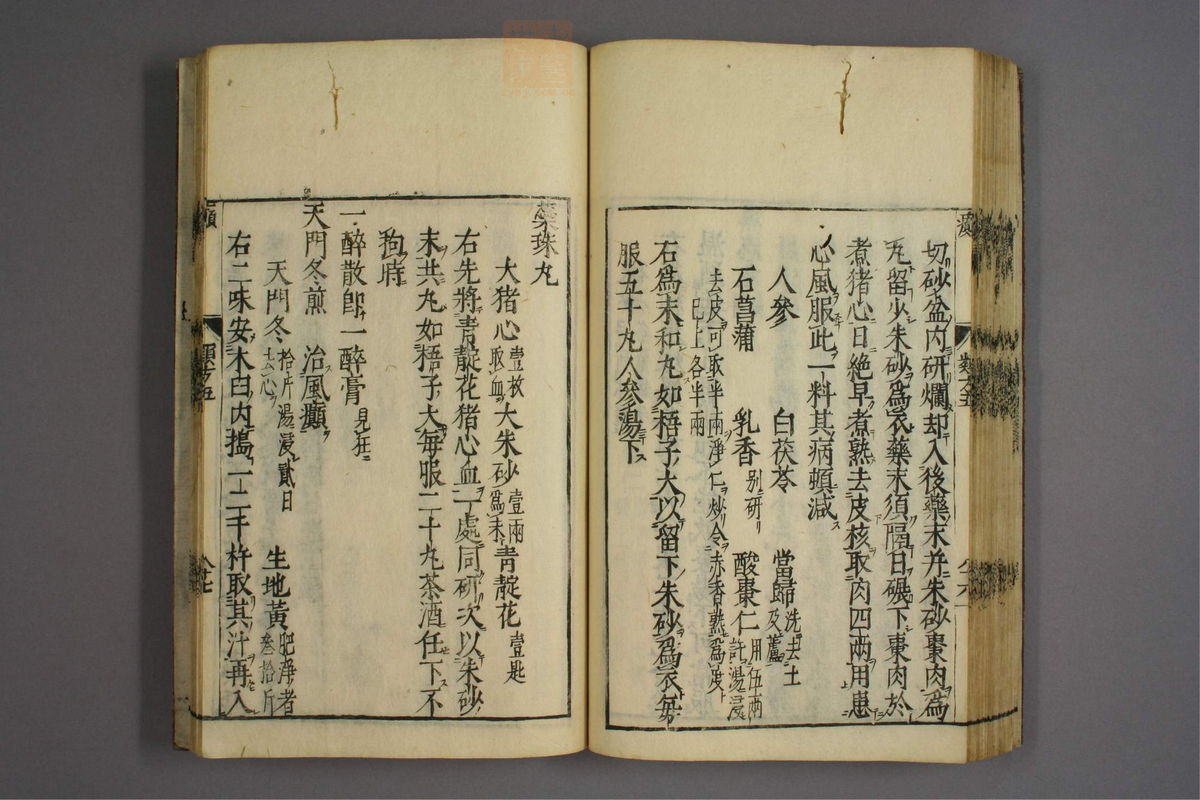 切砂盆内研爛却入後藥末并朱砂棗肉爲
丸留少朱砂爲衣藥末須隔日碾下棗肉於
煮猪心日絶早煮熟去皮核取肉四兩用患
心風服此一料其病頓減
人參 白茯苓 當歸洗去土及蘆
石菖蒲 乳香別研 酸棗仁用伍兩許湯浸
去皮可取半兩淨仁炒令赤香熟爲度
已上各半兩
右爲末和丸如梧子大以留下朱砂爲衣毎
服五十丸人參湯下
蘂珠丸
大猪心壹枚取血大朱砂壹兩爲末青靛花壹匙
右先將青靛花猪心血一處同研次以朱砂
末共丸如梧子大毎服二十丸茶酒任下不
拘時
一醉散即一醉膏見狂
天門冬煎 治風癲
天門冬拾斤湯浸貳日去心 生地黄肥淨者叄拾斤
右二味安木臼内搗一二千杵取其汁再入